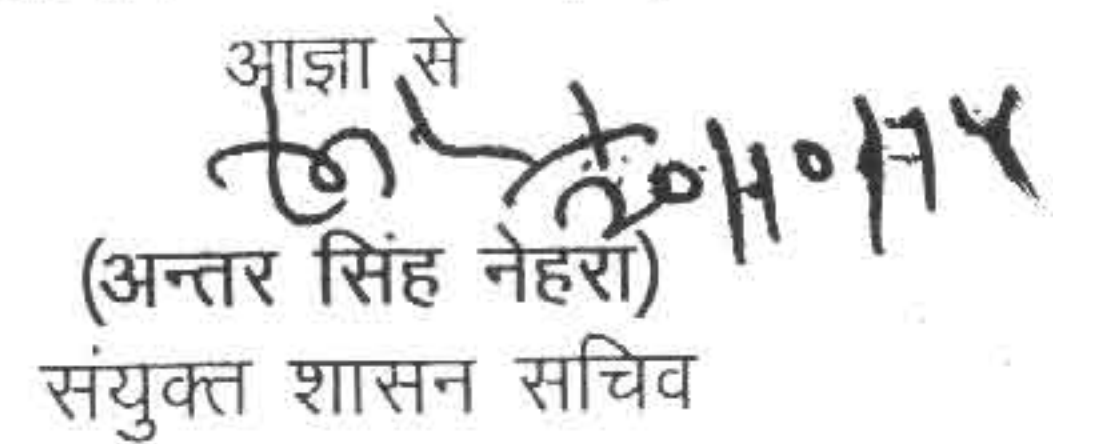 आज्ञा से
(अन्तर सिंह नेहरा)
संयुक्त शासन सचिव